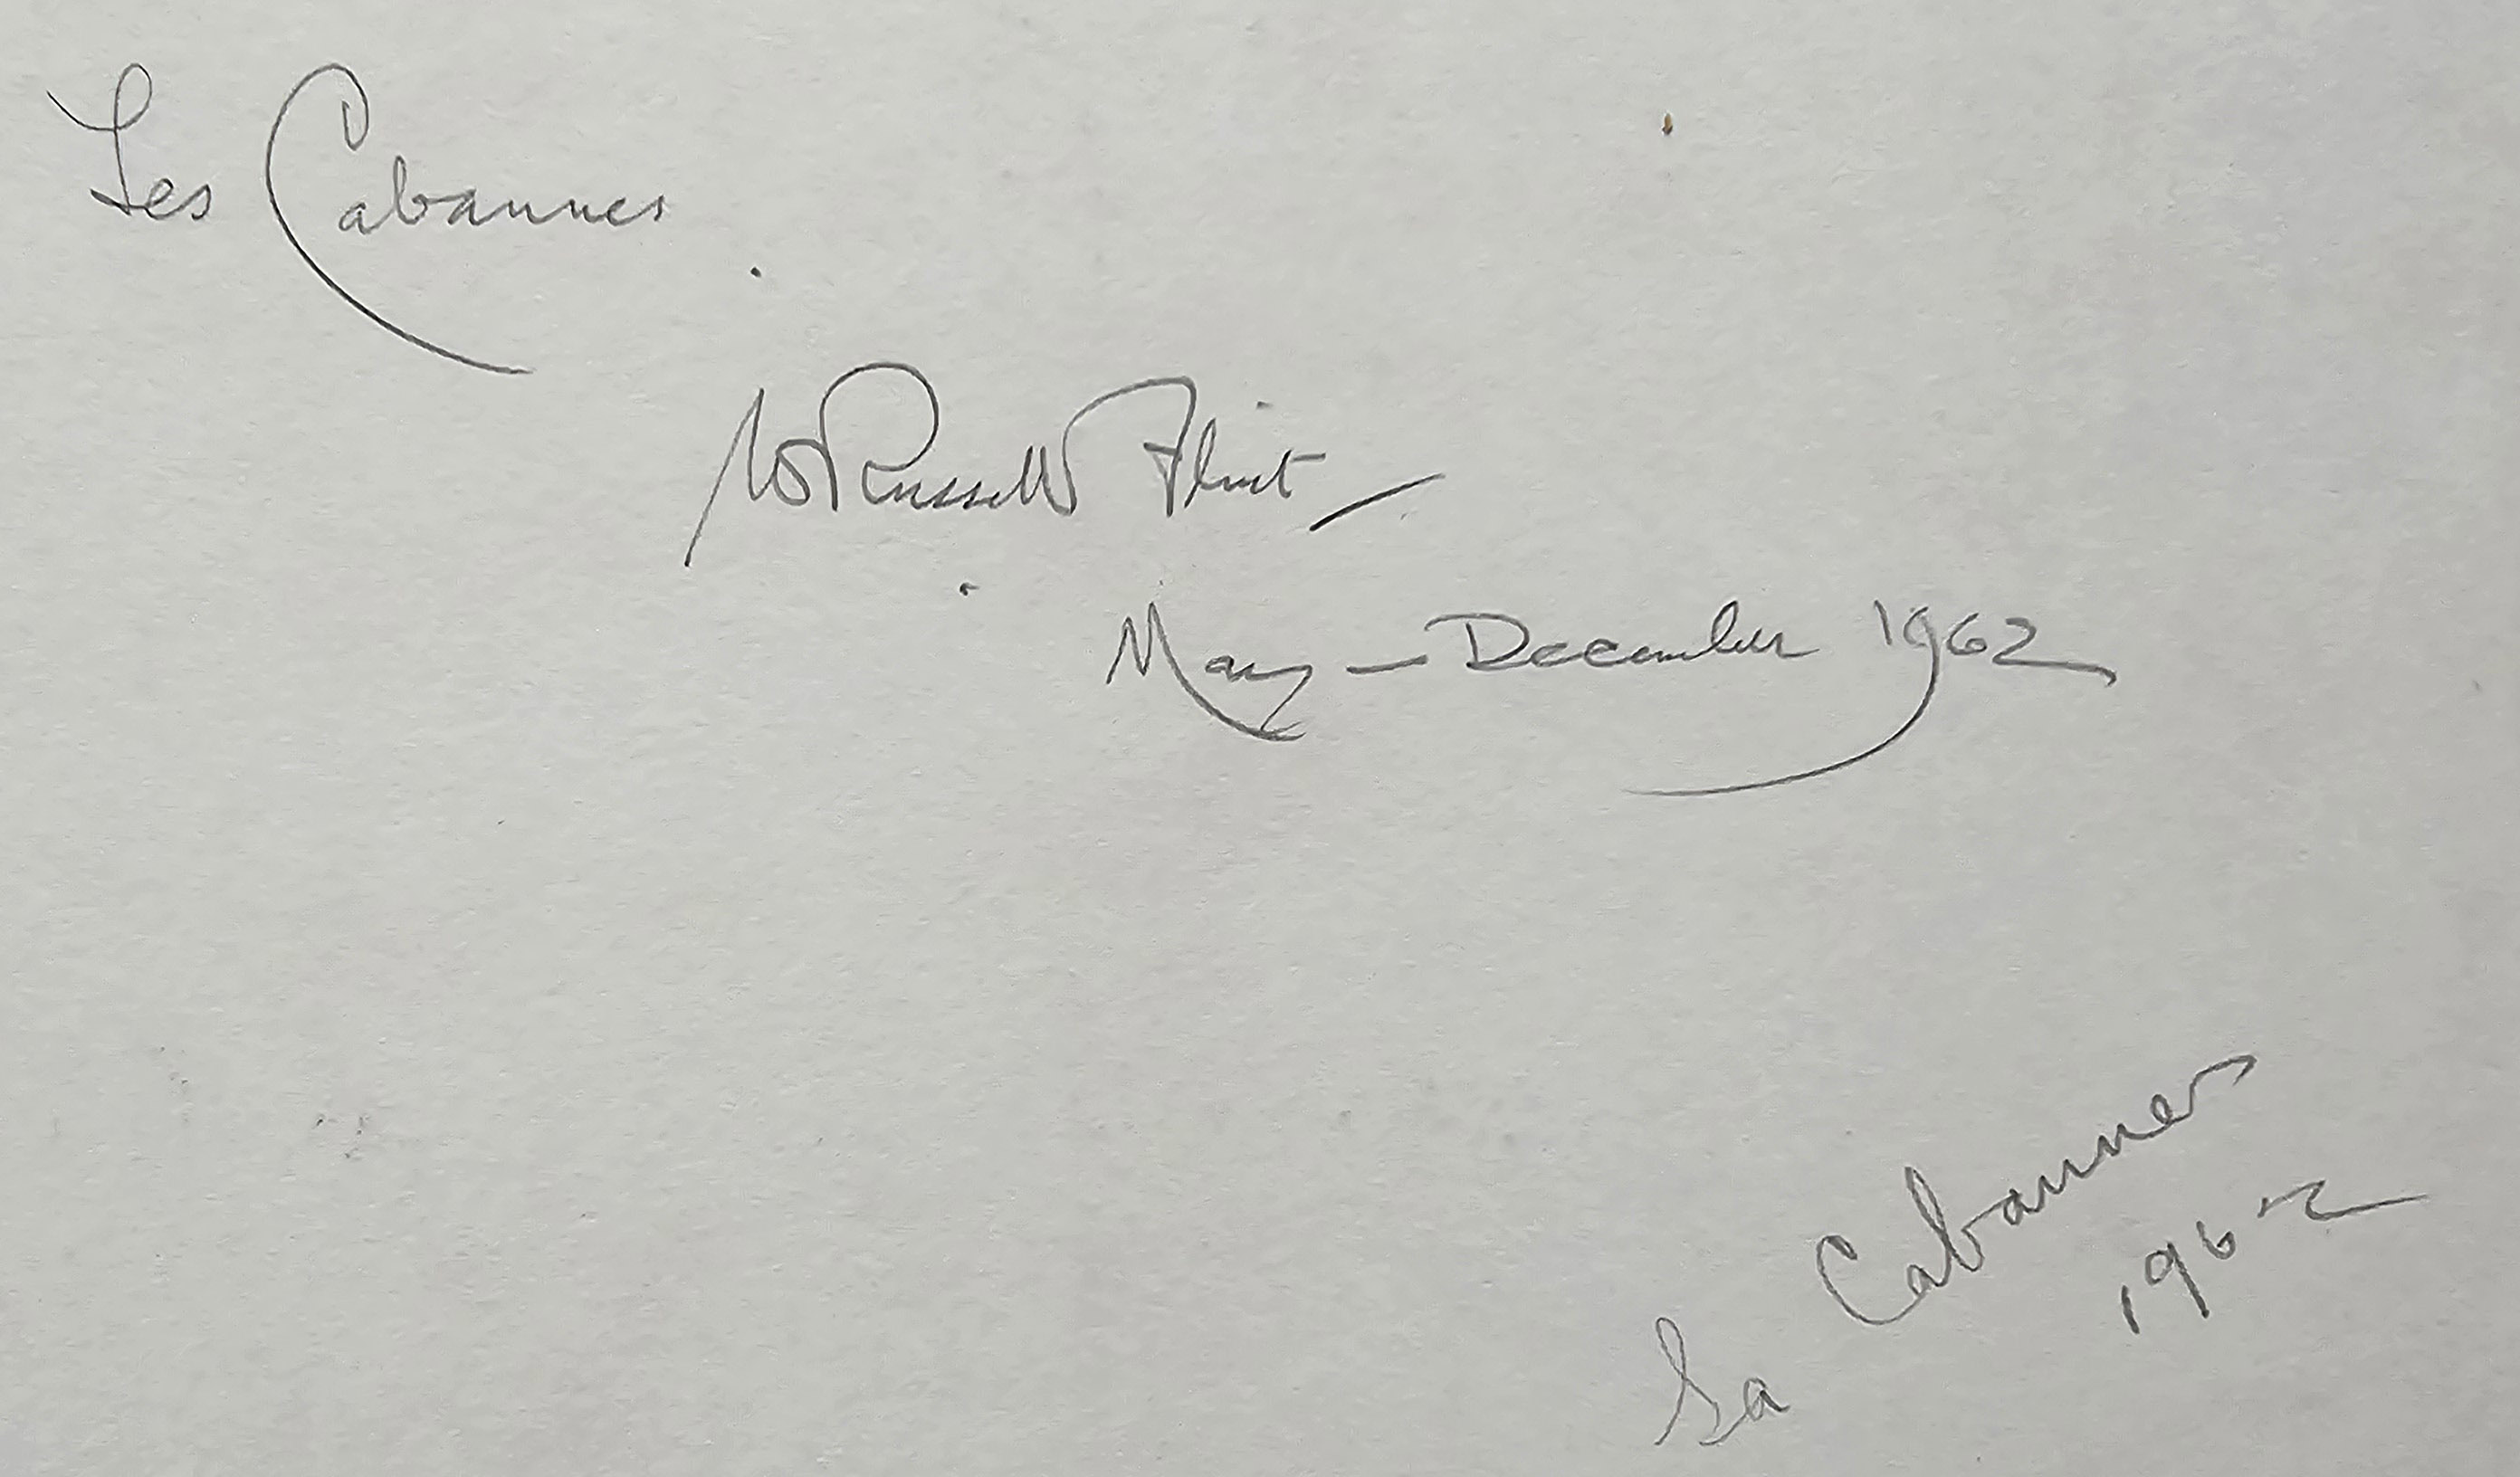 Les Cabannes
W Russell Flint
May — December 1962
La Cabannes
1962